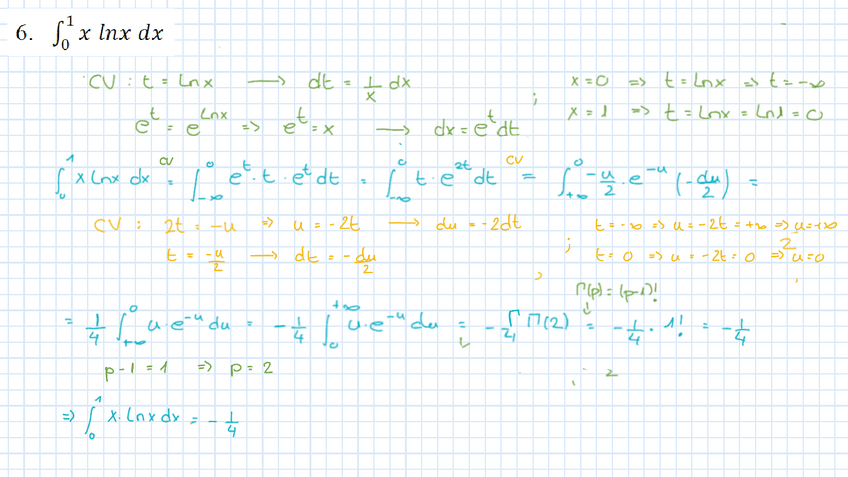 6. ∫₀¹ x lnx dx
CV : t = Lnx ⟶ dt = 1/x dx ; x=0 => t = Lnx => t = -∞
e^t = e^Lnx => e^t = x ⟶ dx = e^t dt x = 1 => t = Lnx = Ln1 = 0
∫₀¹ x Lnx dx =^CV ∫_{-∞}^0 e^t · t · e^t dt = ∫_{-∞}^0 t · e^{2t} dt =^CV ∫_{+∞}^0 -u/2 · e^{-u} (-du/2) =
CV : 2t = -u => u = -2t ⟶ du = -2dt ; t = -∞ => u = -2t = +∞ => u=+∞
t = -u/2 ⟶ dt = -du/2 , t = 0 => u = -2t = 0 => u=0
Γ(p) = (p-1)!
= 1/4 ∫_{+∞}^0 u · e^{-u} du = -1/4 ∫_0^{+∞} u · e^{-u} du = -1/4 Γ(2) = -1/4 · 1! = -1/4
p-1 = 1 => p = 2
=> ∫₀¹ x · Lnx dx = -1/4